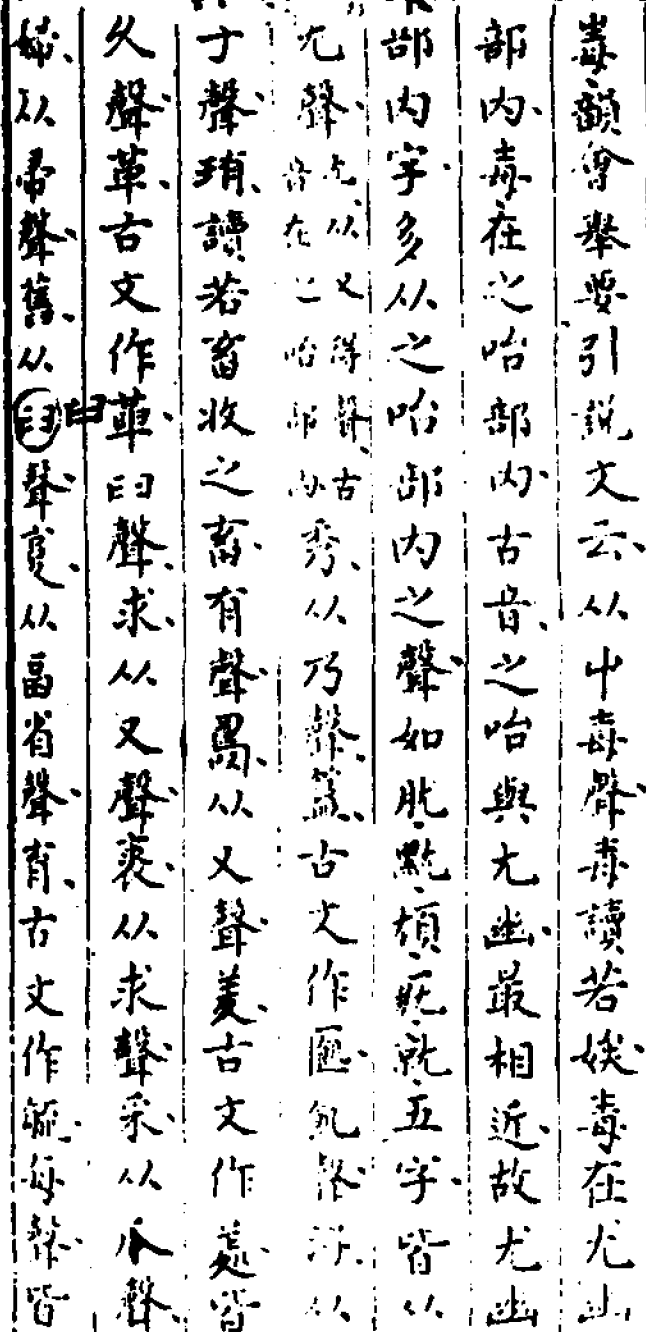 毒韻會舉要引說文云从屮毐聲毐讀若娭毒在尤幽
部内毐在之咍部内古音之咍與尤幽最相近故尤幽
部内字多从之咍部内之聲如肬就五字皆从
尤聲尤从又得聲古音在之咍部内秀从乃聲簋古文作飢聲从
于聲珛讀若畜牧之畜有聲从又聲羑古文作皆
久聲革古文作臼聲求从又聲裘从求聲采从爪聲
婦从帚聲舊从臼臼聲从畐省聲育古文作毓每聲皆